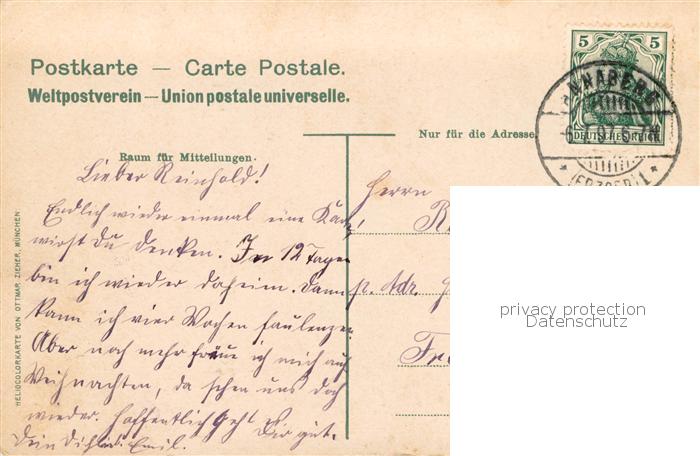 Postkarte — Carte Postale.
Weltpostverein — Union postale universelle.
5 5
DEUTSCHES REICH
ANNABERG
(ERZGEB) 1
Nur für die Adresse.
Raum für Mitteilungen.
Lieber Reinhold!
Endlich wieder einmal eine Karte,
wirst Du denken. In 12 Tagen
bin ich wieder daheim. Dann
kann ich vier Wochen faulenzen.
Aber noch mehr freue ich mich auf
Weihnachten, da sehen uns doch
wieder. Hoffentlich geht es Dir gut.
Dein Emil.
Herrn
p. Adr.
HELIOCOLORKARTE VON OTTMAR ZIEHER, MÜNCHEN
privacy protection
Datenschutz